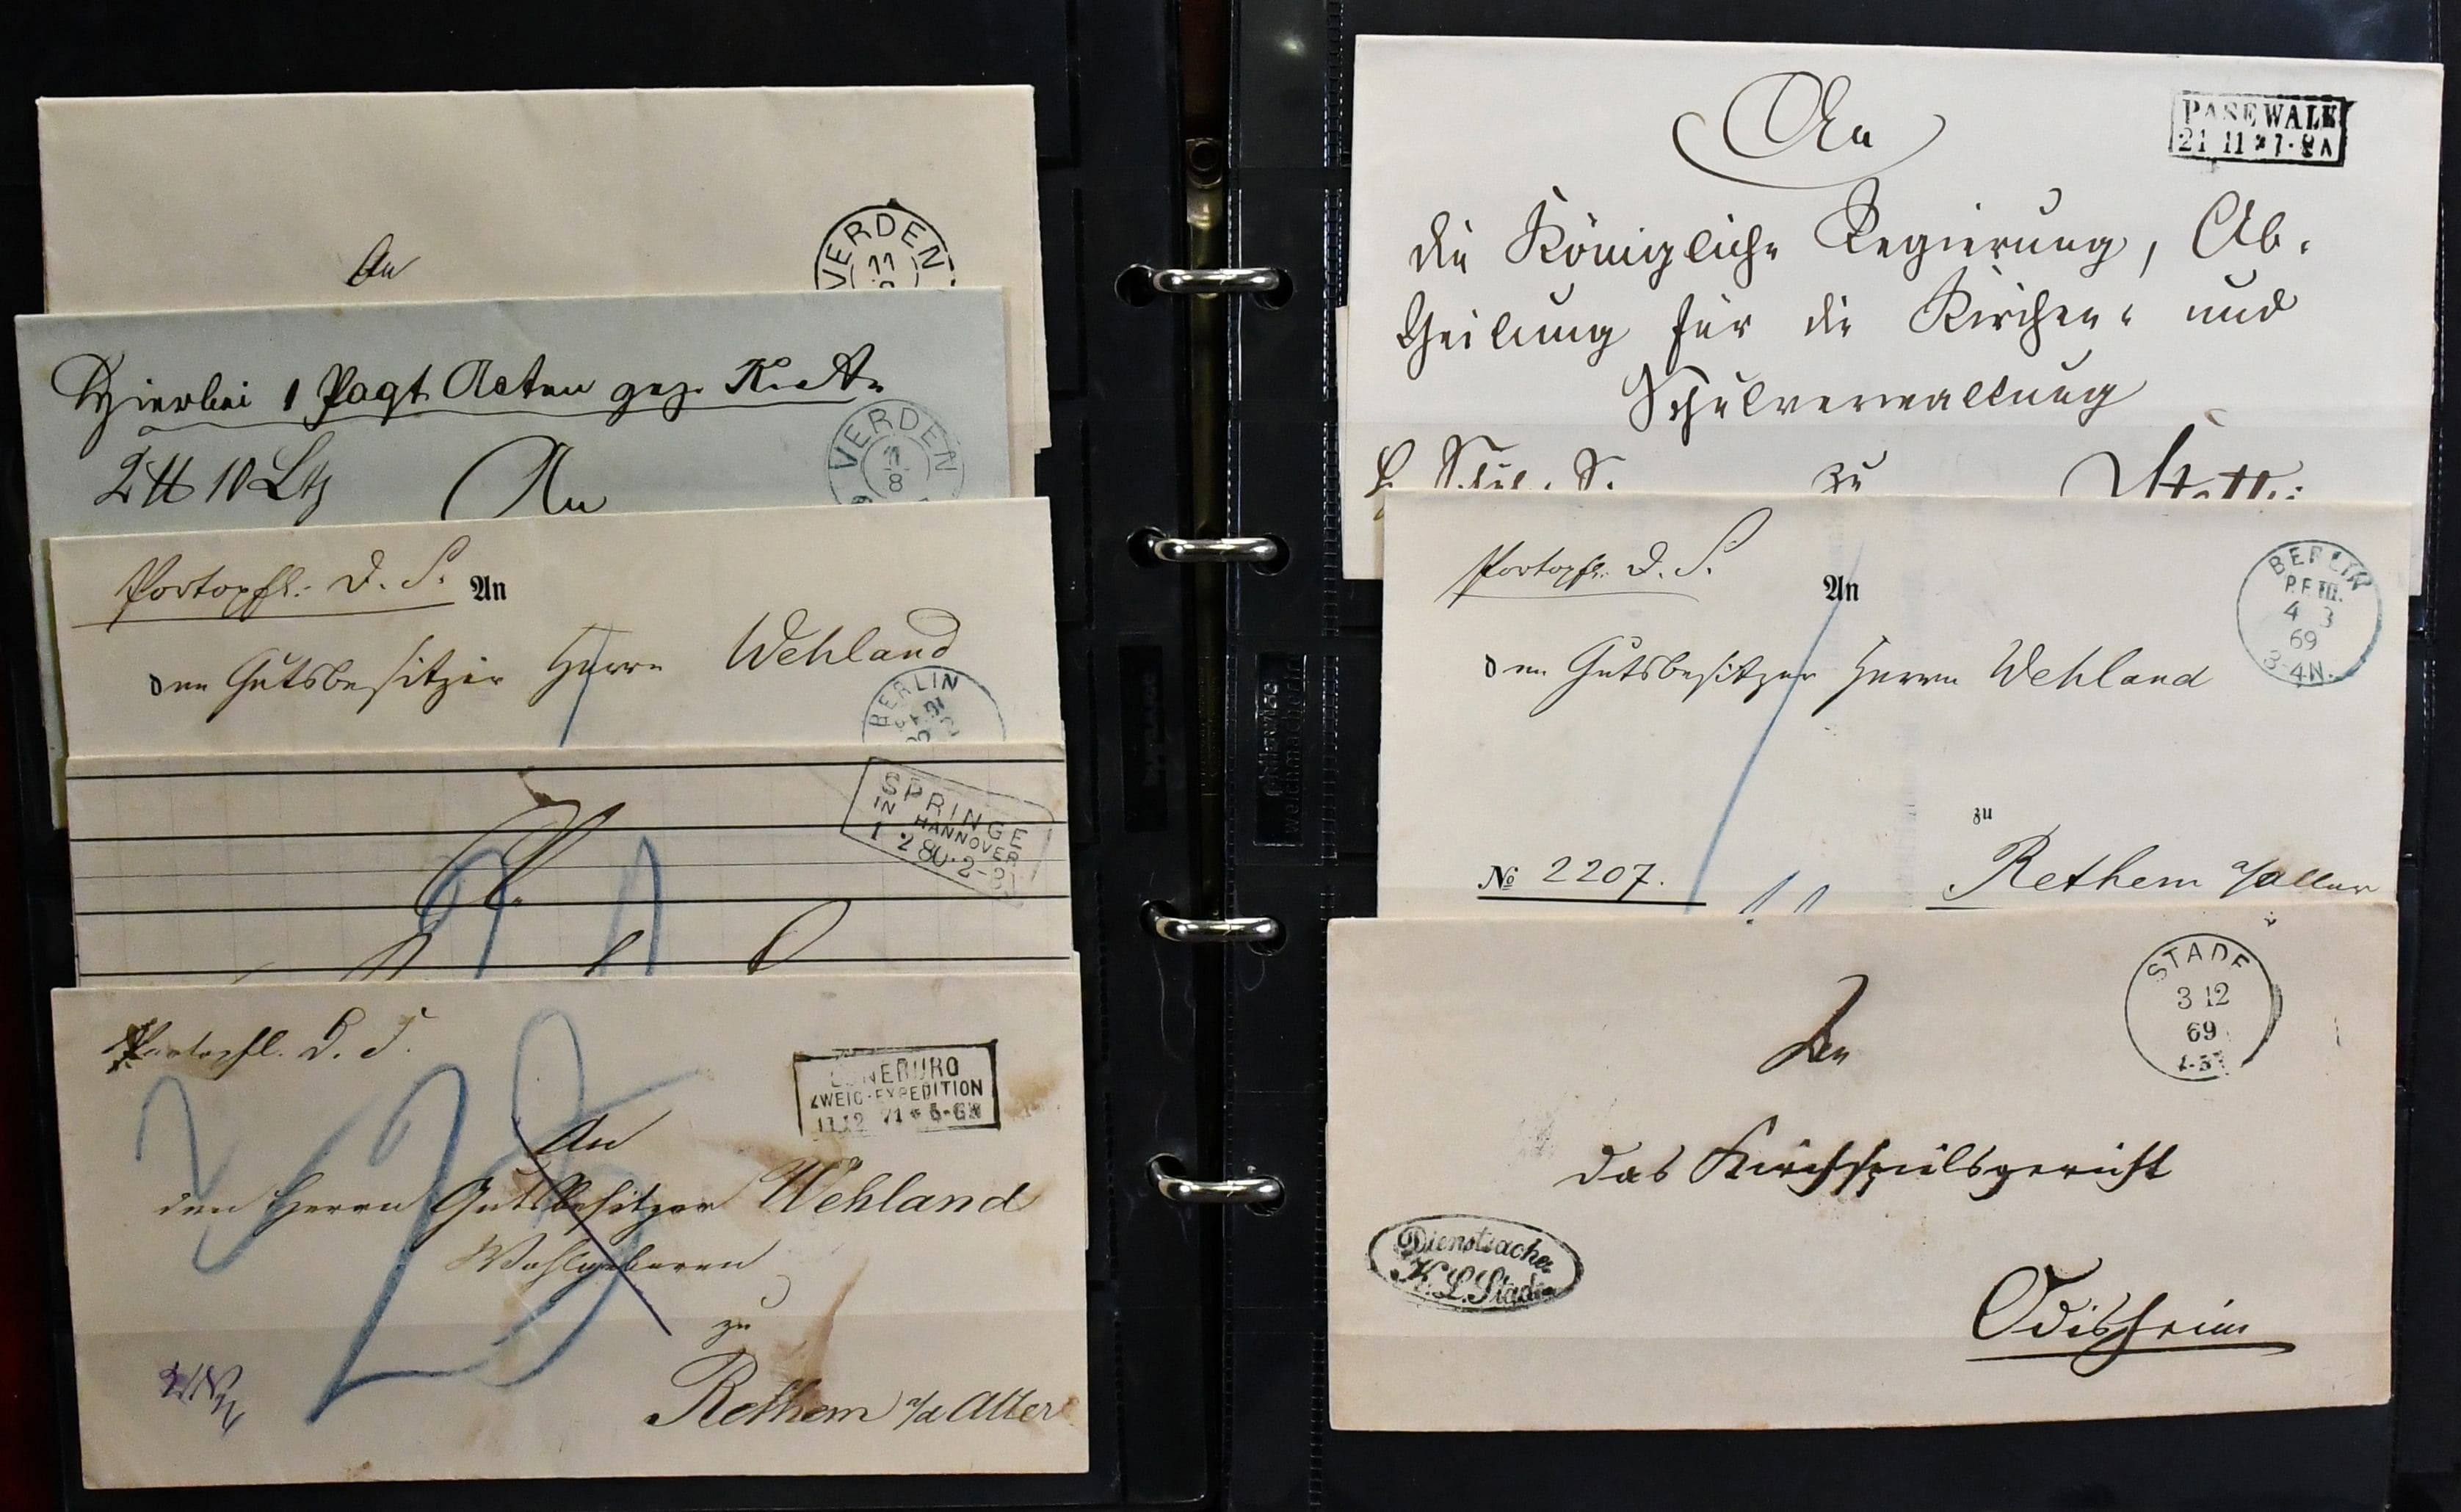 An
VERDEN
11
Hierbei 1 Paqt. Acten gez. K. A.
2 tt 10 Lth
An
VERDEN
11
8
Portopfl. D. S.
An
den Gutsbesitzer Herrn Wehland
BERLIN
SPRINGE
IN HANNOVER
1 2 80 · 2-3
Portopfl. D. S.
LÜNEBURG
ZWEIG-EXPEDITION
11 12 71 * 5-6N
An
den Herrn Gutsbesitzer Wehland
Wohlgeboren
zu
Rethem a/d Aller
An
PASEWALK
21 11 * 7-8A
die Königliche Regierung, Ab-
theilung für die Kirchen- und
Schulverwaltung
zu
Stettin
Portopfl. D. S.
An
BERLIN
P.E. III.
4 3
69
3-4N.
den Gutsbesitzer Herrn Wehland
zu
№ 2207.
Rethem a/Aller
STADE
3 12
69
An
das Kirchspielsgericht
Dienstsache
K. L. Stade
Odisheim